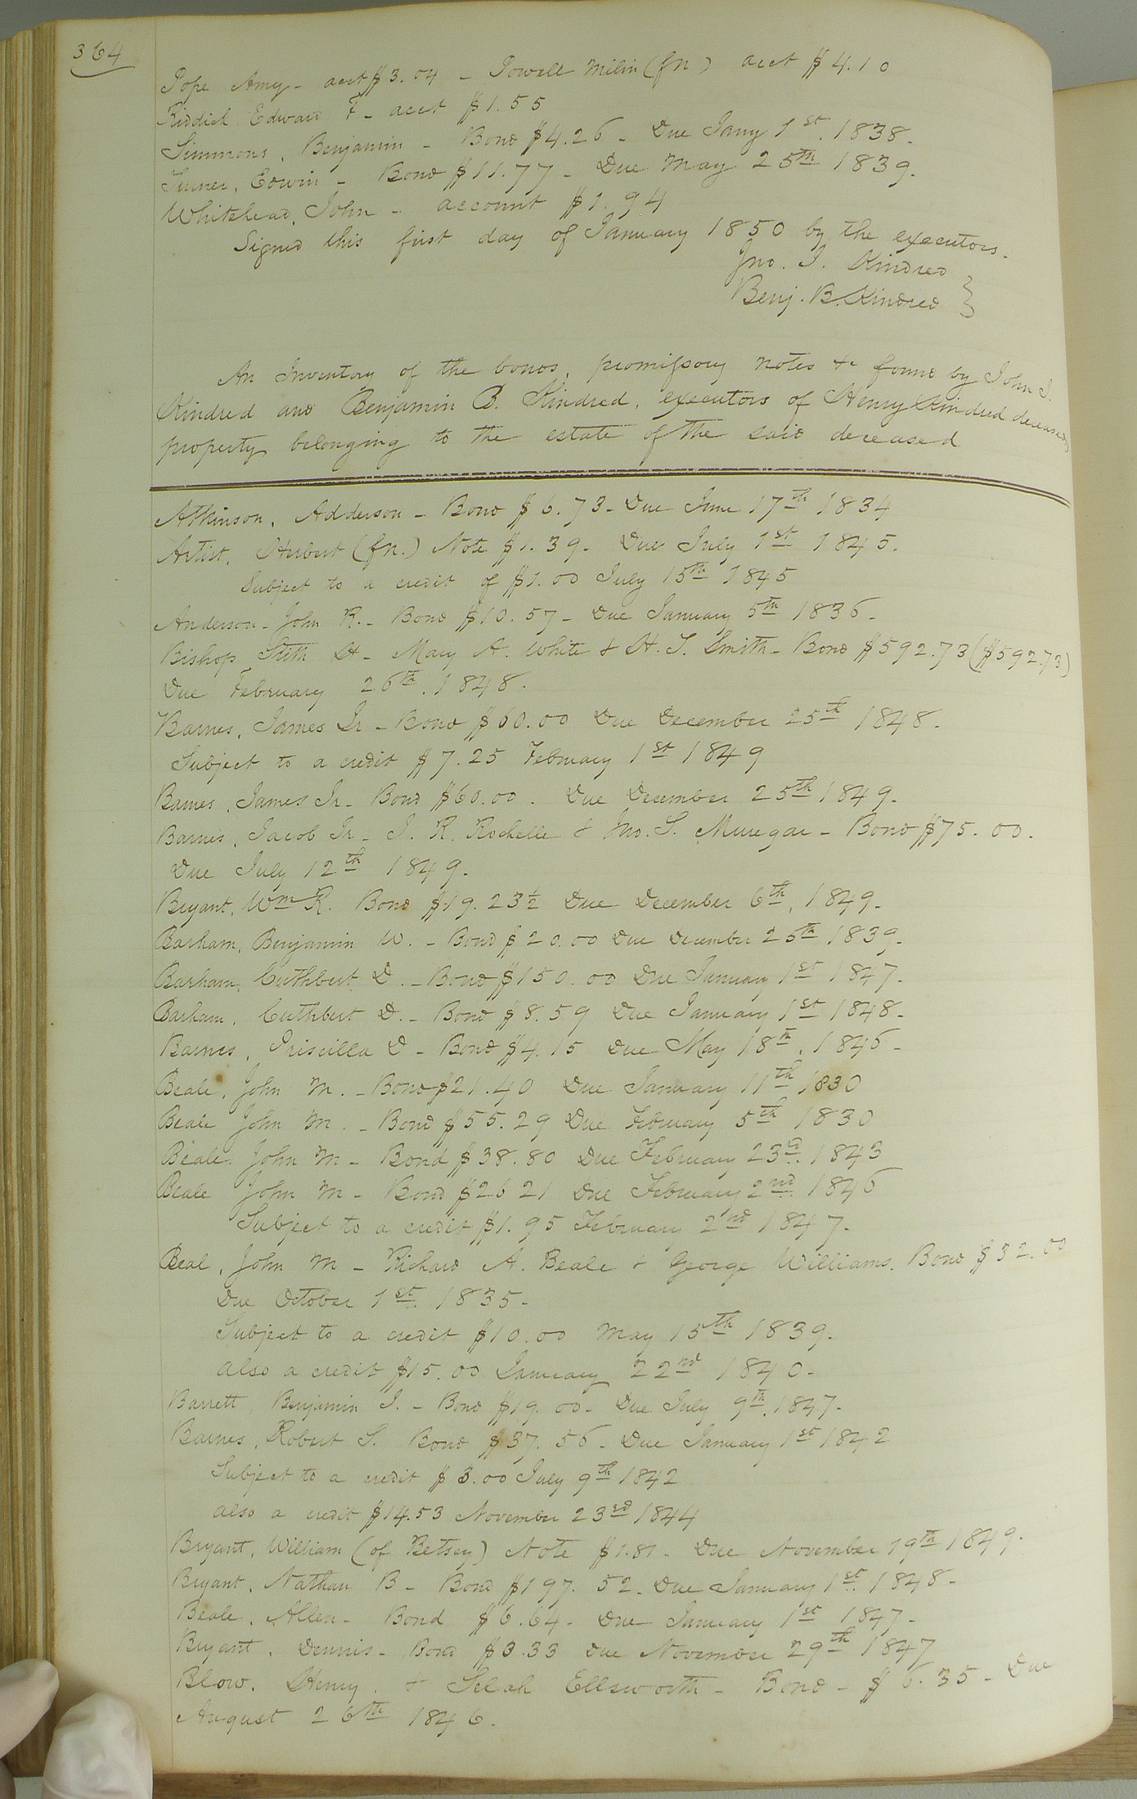 364
Pope Amy - acct $3.04 - Powell Milin (fn) acct $4.10
Riddick Edward F. - acct $1.55
Simmons, Benjamin - Bond $4.26 - Due Jany 1st 1838.
Turner, Edwin - Bond $11.77 - Due May 25th 1839.
Whitehead, John - account $1.94
Signed this first day of January 1850 by the executors.
Jno. J. Kindred
Benj. B. Kindred }
An Inventory of the bonds, promissory notes &c found by John J.
Kindred and Benjamin B. Kindred, executors of Henry Kindred deceased,
property belonging to the estate of the said deceased
Atkinson, Adderson - Bond $6.73 - Due June 17th 1834
Artist, Hubert (fn.) Note $1.39 - Due July 1st 1845.
Subject to a credit of $1.00 July 15th 1845
Anderson - John R. - Bond $10.57 - Due January 5th 1836 -
Bishop Stith H - Mary A. White & H. T. Smith - Bond $592.73 ($592.73)
Due February 26th, 1848.
Barnes, James Jr - Bond $60.00 Due December 25th 1848 -
Subject to a credit $7.25 February 1st 1849
Barnes, James Jr - Bond $60.00. Due December 25th 1849 -
Barnes, Jacob Jr - J. R. Rochelle & Jno. S. - Bond $75.00.
Due July 12th 1849.
Bryant, Wm R. Bond $19.23½ Due December 6th, 1849 -
Barham, Benjamin W. - Bond $20.00 Due December 25th 1839 -
Barham, Cuthbert D. - Bond $150.00 Due January 1st 1847 -
Barham, Cuthbert D. - Bond $8.59 Due January 1st 1848 -
Barnes, Priscilla D - Bond $4.15 Due May 18th, 1846 -
Beale, John M. - Bond $21.40 Due January 11th 1830
Beale John M. - Bond $55.29 Due February 5th 1830
Beale. John M - Bond $38.80 Due February 23d. 1843
Beale John M - Bond $26 21 Due February 2nd 1846
Subject to a credit $1.95 February 2nd 1847 -
Beal, John M - Richard A. Beale & George Williams. Bond $32.00
Due October 1st 1835 -
Subject to a credit $10.00 May 15th 1839.
also a credit $15.00 January 22nd 1840 -
Barrett Benjamin J. - Bond $19.00 - Due July 9th, 1847 -
Barnes, Robert S. Bond $37.56 - Due January 1st 1842
Subject to a credit $3.00 July 9th 1842
also a credit $14.53 November 23rd 1844
Bryant, William (of Betsey) Note $1.81 - Due November 19th 1849.
Bryant, Nathan B - Bond $197.52 - Due January 1st 1848 -
Beale, Allen - Bond $6.64 - Due January 1st 1847 -
Bryant, Dennis - Bond $3.33 Due November 29th 1847
Blow, Henry, & Selah Ellsworth - Bond - $6.35 - Due
August 26th 1846.